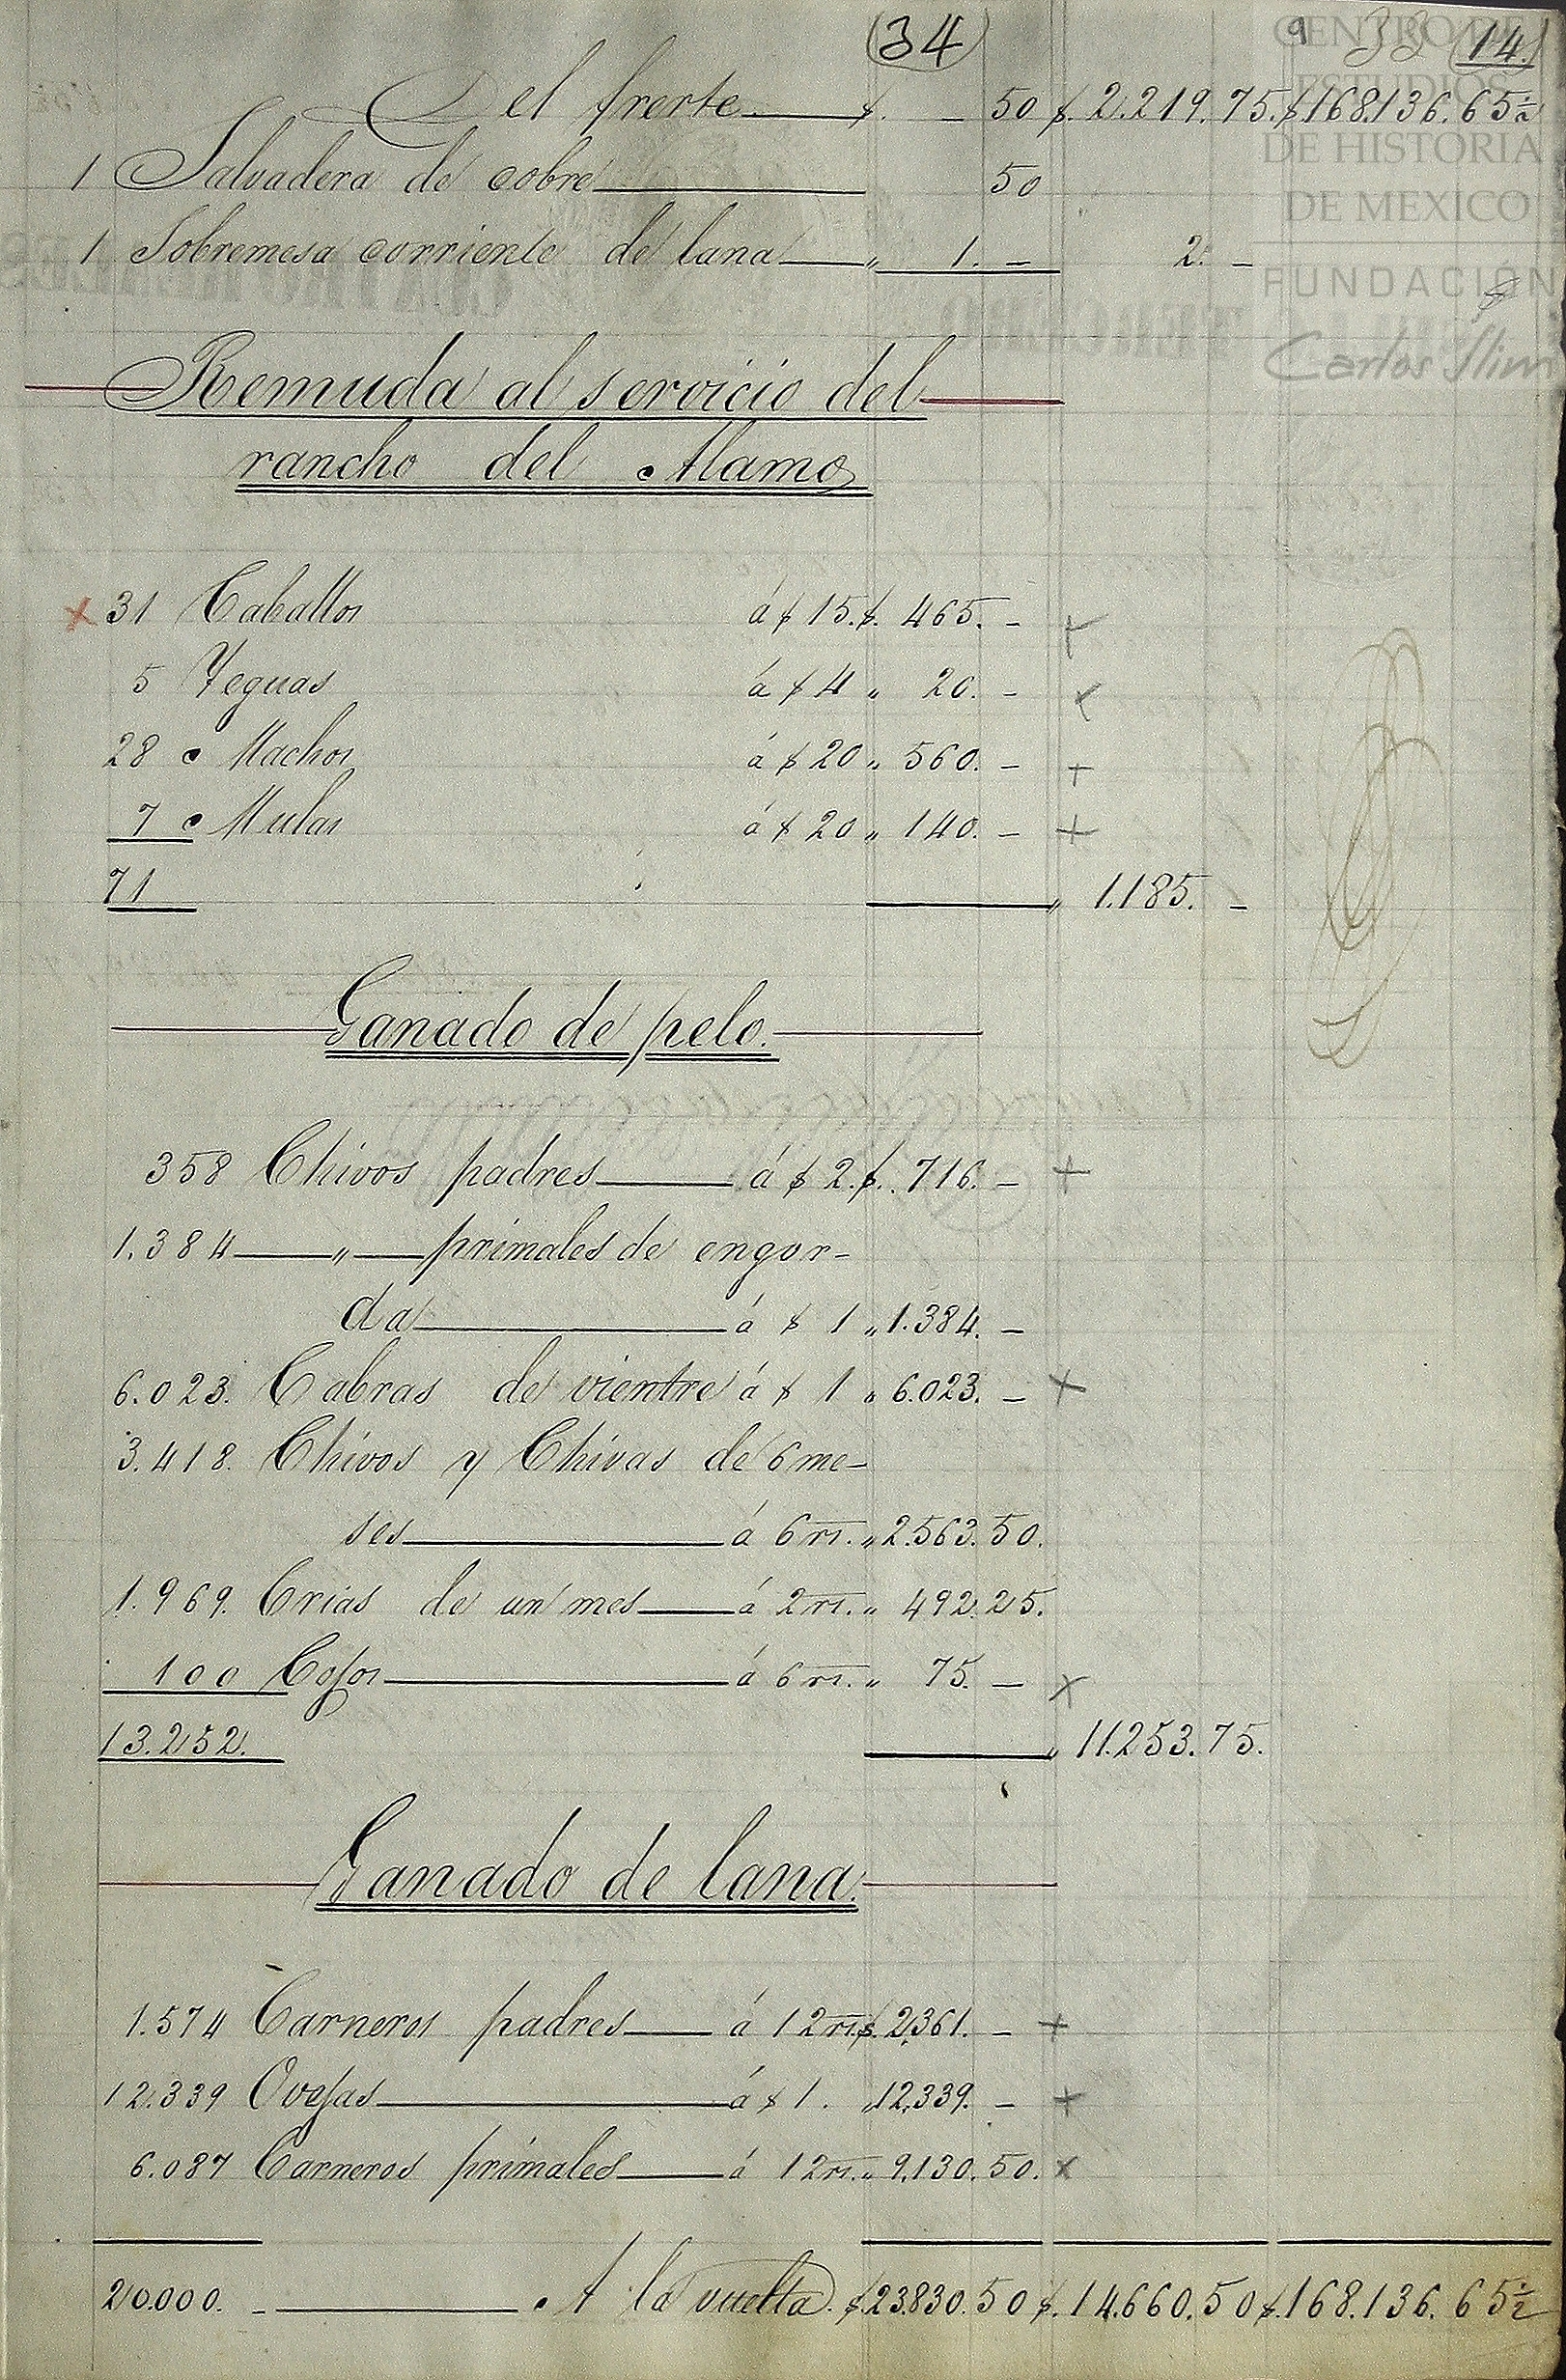 (34) 9 33 14.
Del frente $. _ 50 $. 2.219.75. $.168.136.65½
1 Salvadera de cobre 50
1 Sobremesa corriente de lana „ 1. – 2. –
Remuda al servicio del
rancho del Alamo
x 31 Caballos á $ 15. $. 465. –
5 Yeguas á $ 4 „ 20. –
28 Machos á $ 20 „ 560. –
7 Mulas á $ 20 „ 140. –
71 „ 1.185. –
Ganado de pelo.
358 Chivos padres á $ 2. $. 716. –
1.384 „ primales de engor-
da á $ 1 „ 1.384. –
6.023. Cabras de vientre á $ 1 „ 6.023. –
3.418. Chivos y Chivas de 6 me-
ses á 6 rs. „ 2.563.50.
1.969. Crias de un mes á 2 rs. „ 492.25.
100 Cojos á 6 rs. „ 75. –
13.252. „ 11.253.75.
Ganado de lana.
1.574 Carneros padres á 12 rs. $. 2,361. –
12.339 Ovejas á $ 1. „ 12,339. –
6.087 Carneros primales á 12 rs. „ 9,130.50.
20.000. – A la vuelta. $. 23.830.50 $. 14.660.50 $. 168.136.65½
CENTRO DE
ESTUDIOS
DE HISTORIA
DE MEXICO
FUNDACIÓN
Carlos Slim